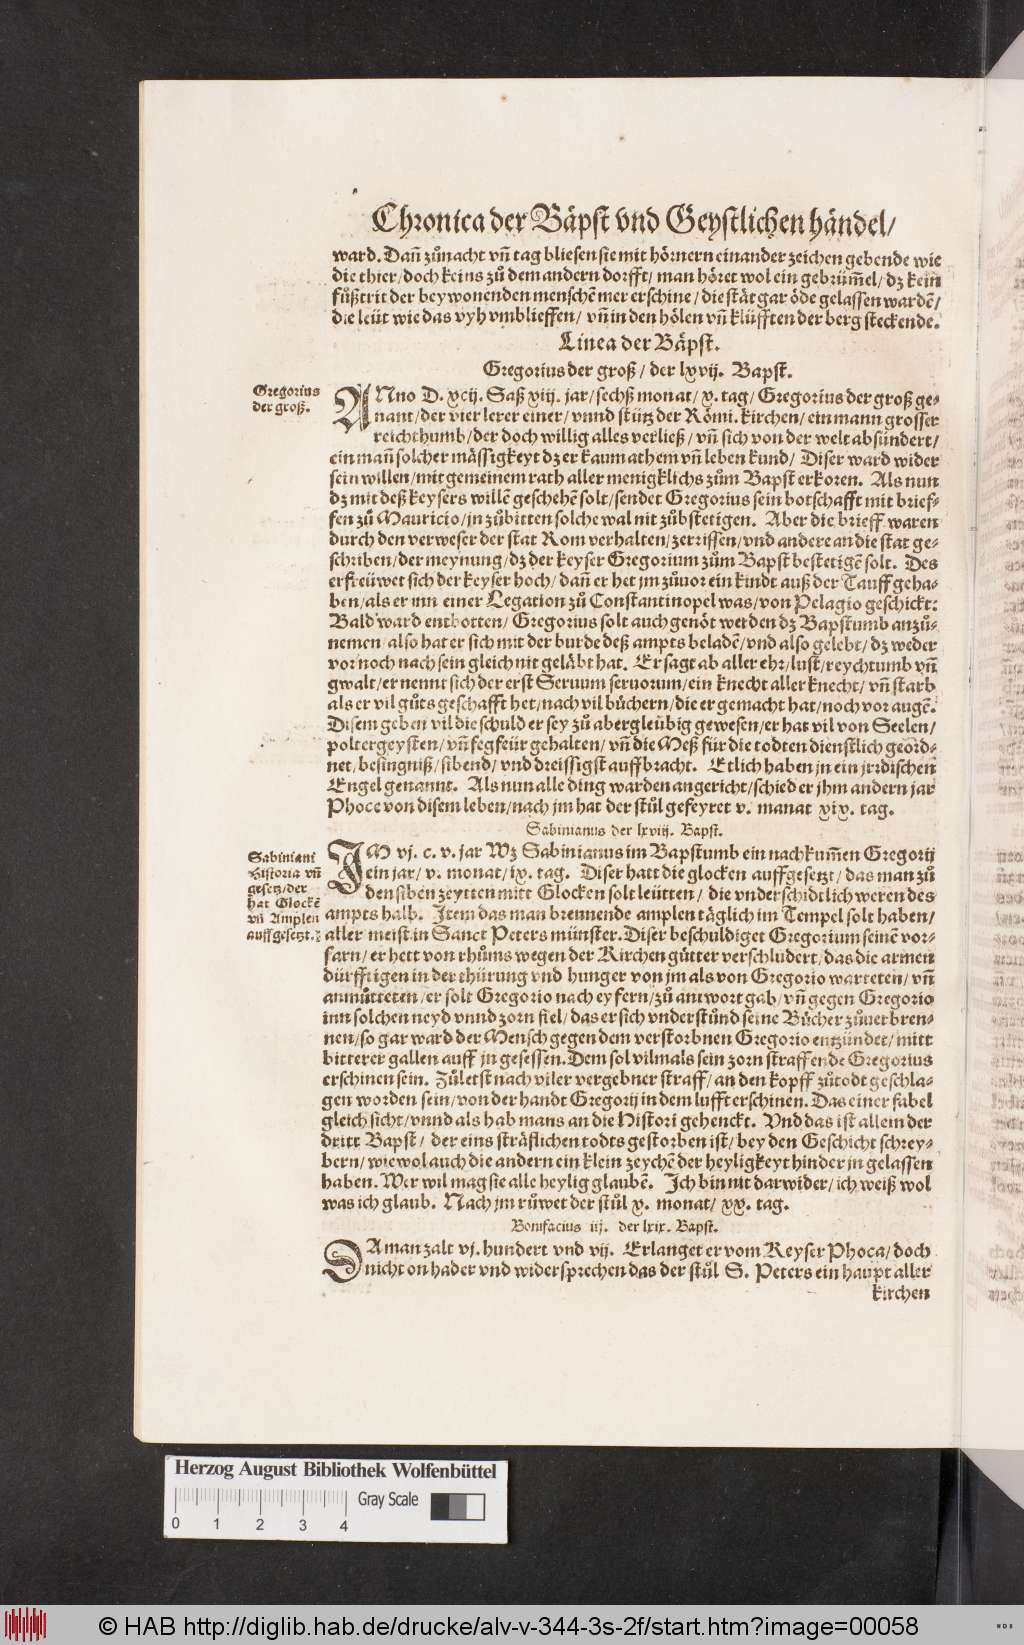 Chronica der Bäpst vnd Geystlichen händel/
ward. Dañ zůnacht vñ tag bliesen sie mit hörnern einander zeichen gebende wie
die thier/doch keins zů dem andern dorfft/ man höret wol ein gebrüm̃el/ dz kein
fůßtrit der beywonenden menschẽ mer erschine/ die stät gar öde gelassen wardẽ/
die leüt wie das vyh vmblieffen/ vñ in den hölen vñ klüfften der berg steckende.
Linea der Bäpst.
Gregorius der groß/ der lxvij. Bapst.
Gregorius
der groß.
ANno D. xcij. Saß xiij. jar/ sechß monat/ x. tag/ Gregorius der groß ge-
nant/ der vier lerer einer/ vnnd stütz der Römi. kirchen/ ein mann grosser
reichthumb/ der doch willig alles verließ/ vñ sich von der welt absündert/
ein mañ solcher mässigkeyt dz er kaum athem vñ leben kund/ Diser ward wider
sein willen/ mit gemeinem rath aller menigklichs zům Bapst erkoren. Als nun
dz mit deß keysers willẽ geschehẽ solt/ sendet Gregorius sein botschafft mit brief-
fen zů Mauricio/ jn zůbitten solche wal nit zůbstetigen. Aber die brieff waren
durch den verweser der stat Rom verhalten/ zerrissen/ vnd andere an die stat ge-
schriben/ der meynung/ dz der keyser Gregorium zům Bapst bestetigẽ solt. Des
erfreüwet sich der keyser hoch/ dañ er het jm zůuor ein kindt auß der Tauff geha-
ben/ als er inn einer Legation zů Constantinopel was/ von Pelagio geschickt:
Bald ward entbotten/ Gregorius solt auch genöt werden dz Bapstumb anzů-
nemen/ also hat er sich mit der burde deß ampts beladẽ/ vnd also gelebt/ dz weder
vor noch nach sein gleich nit geläbt hat. Er sagt ab aller ehr/ lust/ reychtumb vñ
gwalt/ er nennt sich der erst Seruum seruorum/ ein knecht aller knecht/ vñ starb
als er vil gůts geschafft het/ nach vil bůchern/ die er gemacht hat/ noch vor augẽ.
Disem geben vil die schuld er sey zů abergleübig gewesen/ er hat vil von Seelen/
poltergeysten/ vñ fegfeür gehalten/ vñ die Meß für die todten dienstlich geord-
net/ besingniß/ sibend/ vnd dreissigst auffbracht. Etlich haben jn ein jrrdischen
Engel genannt. Als nun alle ding warden angericht/ schied er jhm andern jar
Phoce von disem leben/ nach jm hat der stůl gefeyret v. manat xix. tag.
Sabinianus der lxviij. Bapst.
Sabiniani
Historia vñ
gesetz/der
hat Glockẽ
vñ Amplen
auffgesetzt.
IM vj. c. v. jar Wz Sabinianus im Bapstumb ein nachkum̃en Gregorij
ein jar/ v. monat/ ix. tag. Diser hatt die glocken auffgesetzt/ das man zů
den siben zeytten mitt Glocken solt leütten/ die vnderschidtlich weren des
ampts halb. Item das man brennende amplen täglich im Tempel solt haben/
aller meist in Sanct Peters münster. Diser beschuldiget Gregorium seinẽ vor-
farn/ er hett von rhůms wegen der Kirchen gůtter verschludert/ das die armen
dürfftigen in der thürung vnd hunger von jm als von Gregorio warteten/ vñ
anmůtteten/ er solt Gregorio nach eyfern/ zů antwort gab/ vñ gegen Gregorio
inn solchen neyd vnnd zorn fiel/ das er sich vnderstůnd seine Bücher zůuerbren-
nen/ so gar ward der Mensch gegen dem verstorbnen Gregorio entzündet/ mitt
bitterer gallen auff jn gesessen. Dem sol vilmals sein zorn straffende Gregorius
erschinen sein. Zůletst nach viler vergebner straff/ an den kopff zůtodt geschla-
gen worden sein/ von der handt Gregorij in dem lufft erschinen. Das einer fabel
gleich sicht/ vnnd als hab mans an die Histori gehenckt. Vnd das ist allein der
dritt Bapst/ der eins sträflichen todts gestorben ist/ bey den Geschicht schrey-
bern/ wiewol auch die andern ein klein zeychẽ der heyligkeyt hinder jn gelassen
haben. Wer wil mag sie alle heylig glaubẽ. Ich bin nit darwider/ ich weiß wol
was ich glaub. Nach jm růwet der stůl x. monat/ xx. tag.
Bonifacius iij. der lxix. Bapst.
DA man zalt vj. hundert vnd vij. Erlanget er vom Keyser Phoca/ doch
nicht on hader vnd widersprechen das der stůl S. Peters ein haupt aller
kirchen
Herzog August Bibliothek Wolfenbüttel
Gray Scale
0 1 2 3 4
© HAB http://diglib.hab.de/drucke/alv-v-344-3s-2f/start.htm?image=00058